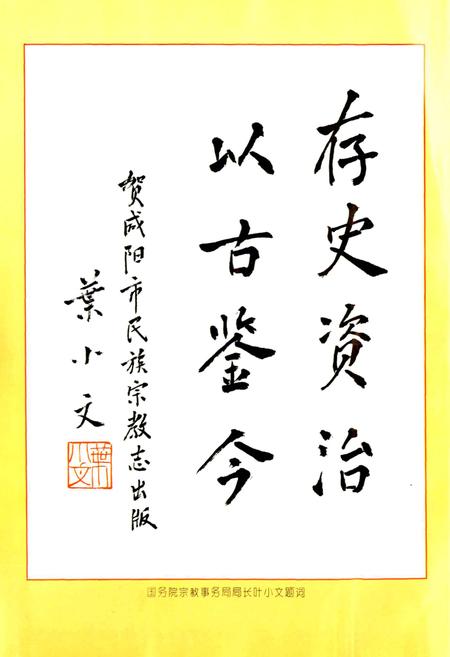 存史资治
以古鉴今
贺咸阳市民族宗教志出版
葉小文
葉小文
国务院宗教事务局局长叶小文题词